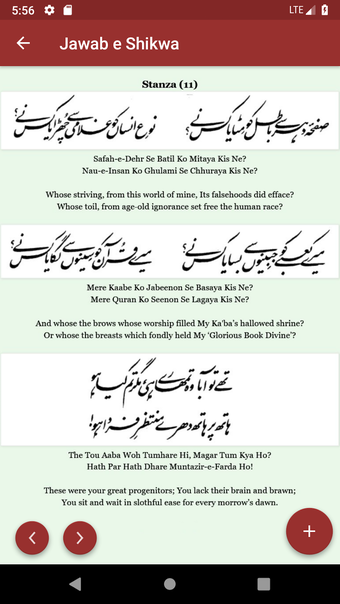 5:56 LTE
Jawab e Shikwa
Stanza (11)
صفحۂ دہر سے باطل کو مٹایا کس نے؟ نوعِ انساں کو غلامی سے چھڑایا کس نے؟
Safah-e-Dehr Se Batil Ko Mitaya Kis Ne?
Nau-e-Insan Ko Ghulami Se Chhuraya Kis Ne?
Whose striving, from this world of mine, Its falsehoods did efface?
Whose toil, from age-old ignorance set free the human race?
میرے کعبے کو جبینوں سے بسایا کس نے؟ میرے قرآن کو سینوں سے لگایا کس نے؟
Mere Kaabe Ko Jabeenon Se Basaya Kis Ne?
Mere Quran Ko Seenon Se Lagaya Kis Ne?
And whose the brows whose worship filled My Ka’ba’s hallowed shrine?
Or whose the breasts which fondly held My ‘Glorious Book Divine’?
تھے تو آبا وہ تمھارے ہی، مگر تم کیا ہو
ہاتھ پر ہاتھ دھرے منتظرِ فردا ہو!
The Tou Aaba Woh Tumhare Hi, Magar Tum Kya Ho?
Hath Par Hath Dhare Muntazir-e-Farda Ho!
These were your great progenitors; You lack their brain and brawn;
You sit and wait in slothful ease for every morrow’s dawn.